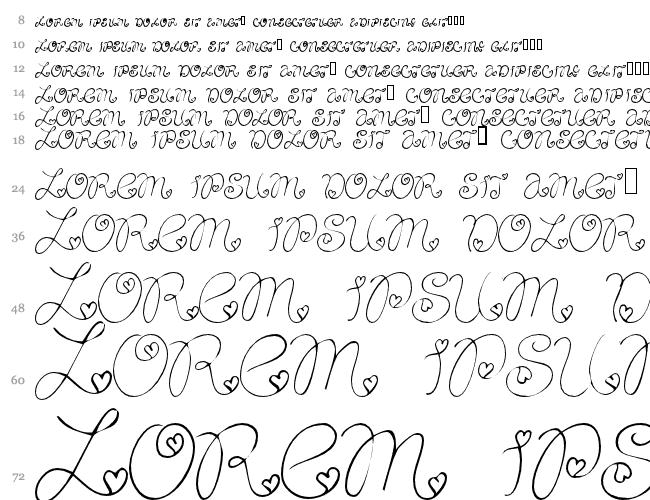 8 LOREM IPSUM DOLOR SIT AMET▯ CONSECTETUER ADIPISCING ELIT▯▯▯
10 LOREM IPSUM DOLOR SIT AMET▯ CONSECTETUER ADIPISCING ELIT▯▯▯
12 LOREM IPSUM DOLOR SIT AMET▯ CONSECTETUER ADIPISCING ELIT▯▯▯
14 LOREM IPSUM DOLOR SIT AMET▯ CONSECTETUER ADIPISC
16 LOREM IPSUM DOLOR SIT AMET▯ CONSECTETUER AD
18 LOREM IPSUM DOLOR SIT AMET▯ CONSECTETU
24 LOREM IPSUM DOLOR SIT AMET▯
36 LOREM IPSUM DOLOR
48 LOREM IPSUM D
60 LOREM IPSUM
72 LOREM IPS